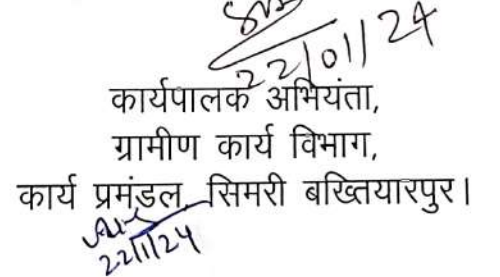 22/01/24
कार्यपालक अभियंता,
ग्रामीण कार्य विभाग,
कार्य प्रमंडल, सिमरी बख्तियारपुर।
22/1/24